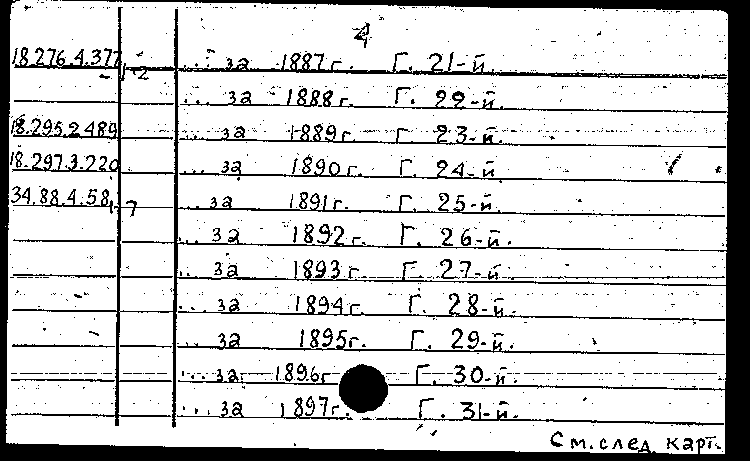 4
18.276.4.377 1-2 ... за 1887г. Г. 21-й.
... за 1888г. Г. 22-й.
18.295.2.489 ... за 1889г. Г. 23-й.
18.297.3.220 ... за 1890г. Г. 24-й.
34.88.4.58 1-7 ... за 1891г. Г. 25-й.
... за 1892г. Г. 26-й.
... за 1893г. Г. 27-й.
... за 1894г. Г. 28-й.
... за 1895г. Г. 29-й.
... за 1896г Г. 30-й.
... за 1897г. Г. 31-й.
См. след. карт.